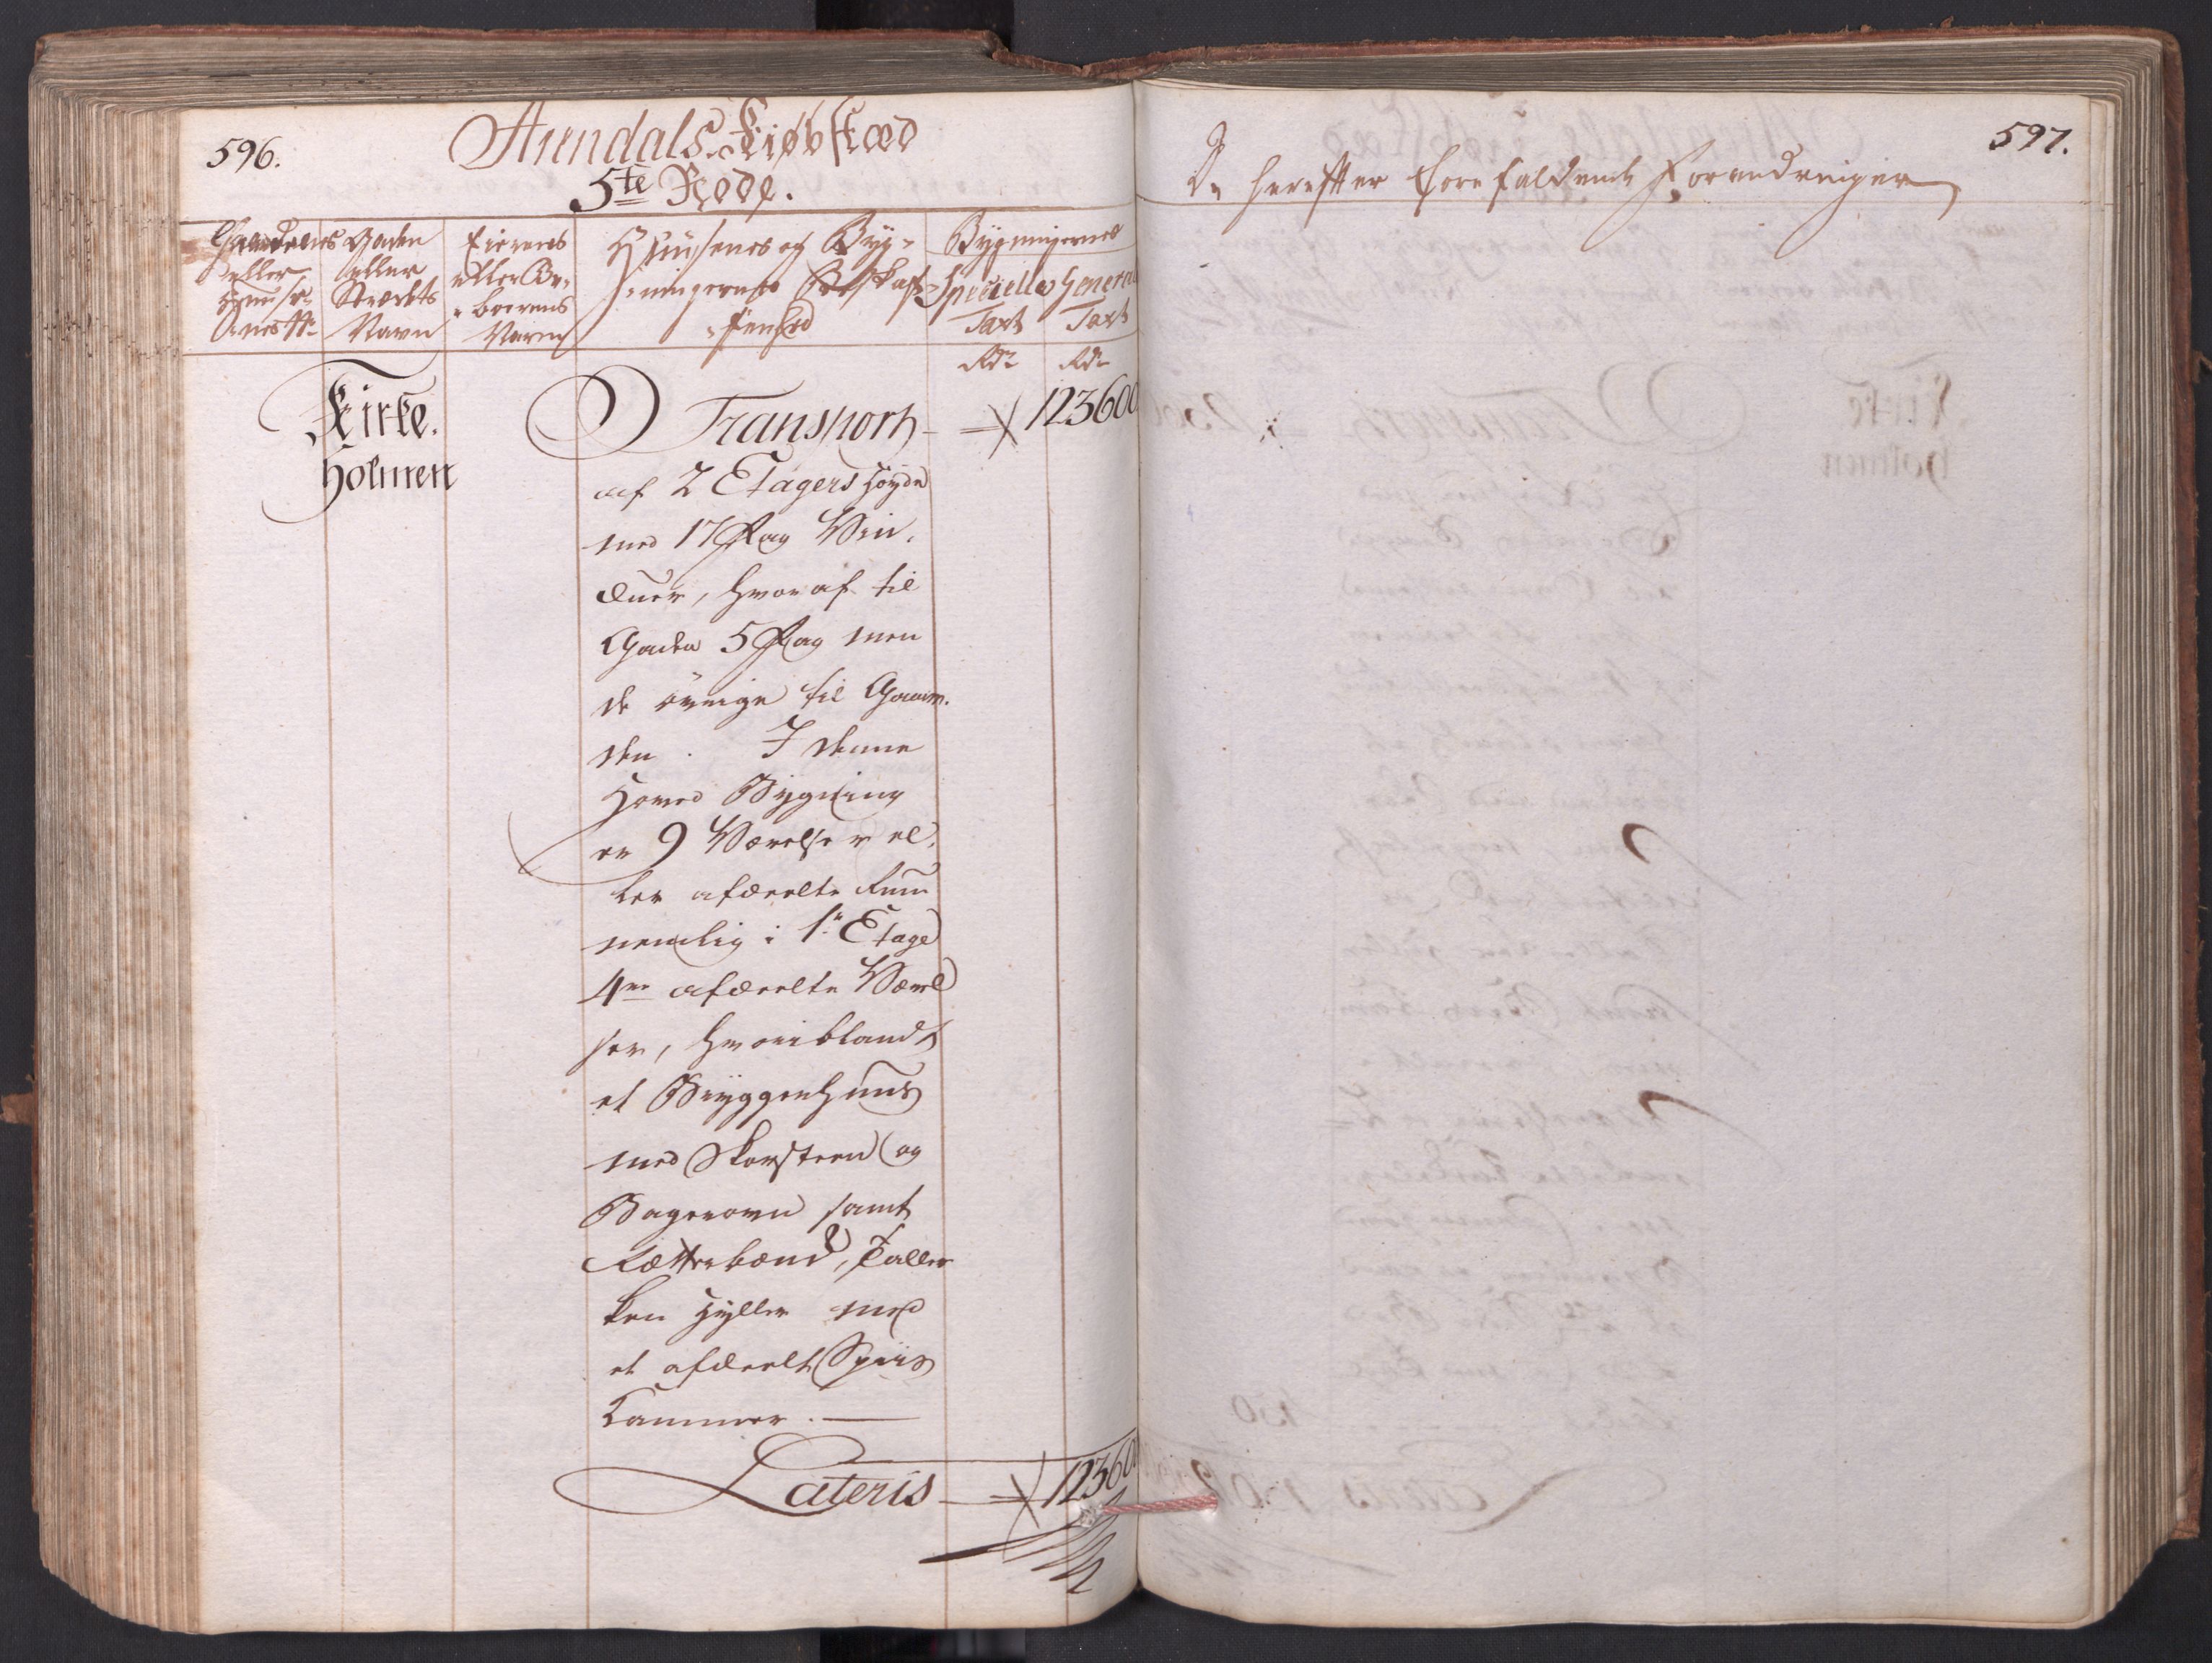 596.
Arendals Kiøbstæd
5te Rode.
Gaardenes eller Huusenes No
Gaden eller Strædets Navn
Eierens eller Beboerens Navn
Huusenes og Bygningernes Beskaffenhed
Bygningernes
Specielle Taxt
General Taxt
Rdr Rdr
Kirke.
Holmen
Transport 123600
af 2 Etagers Høyde
med 17 Fag Vin,
duer, hvoraf til
Gaden 5 Fag men
de øvrige til Gaar,
den. I denne
Hoved Bygning
er 9 Værelser el,
ler afdeelte Rum
nemlig i 1te Etage
4re afdeelte Værel
ser, hvoriblandt
et Bryggerhuus
med Skorsteen og
Bagerovn samt
Rettebænk, Taller
ken Hyller med
et afdeelt Spiis
Cammer.
Lateris 123600
597.
De herefter forefaldende Forandringer